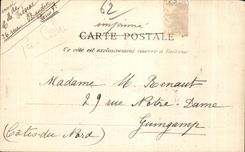 62
imprimé
CARTE POSTALE
Ce côté est exclusivement réservé à l'adresse
Madame M. Renaut
29 rue Notre-Dame
Guingamp
(Côtes du Nord)